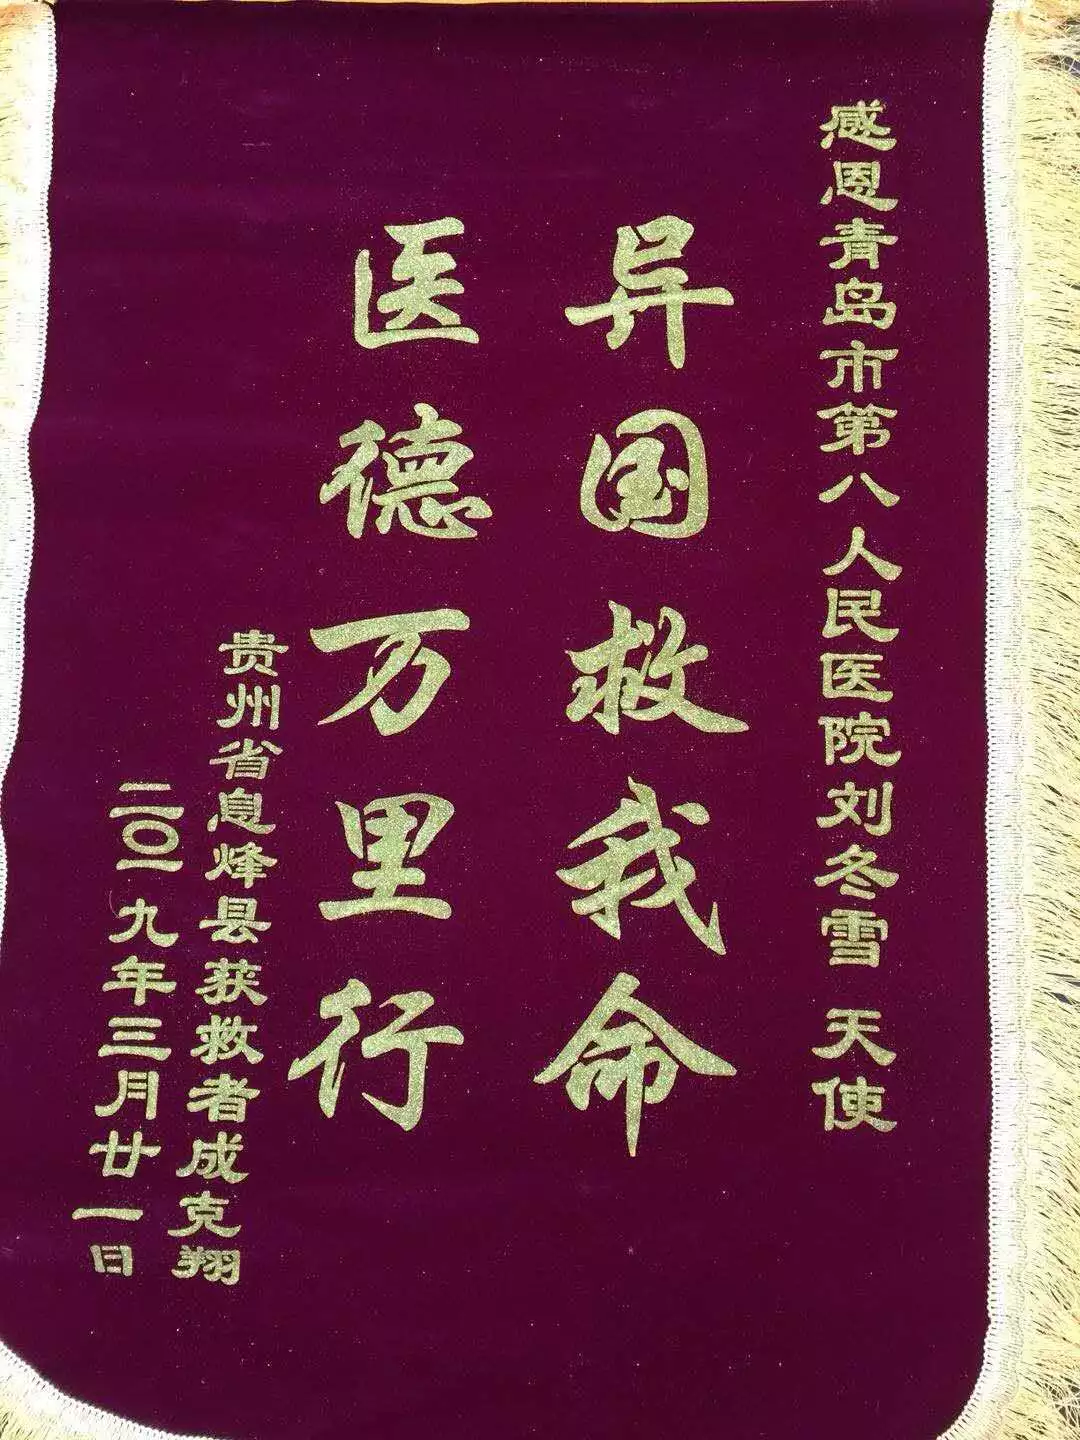 感恩青岛市第八人民医院刘冬雪 天使
异国救我命
医德万里行
贵州省息烽县获救者成克翔
二〇一九年三月廿一日